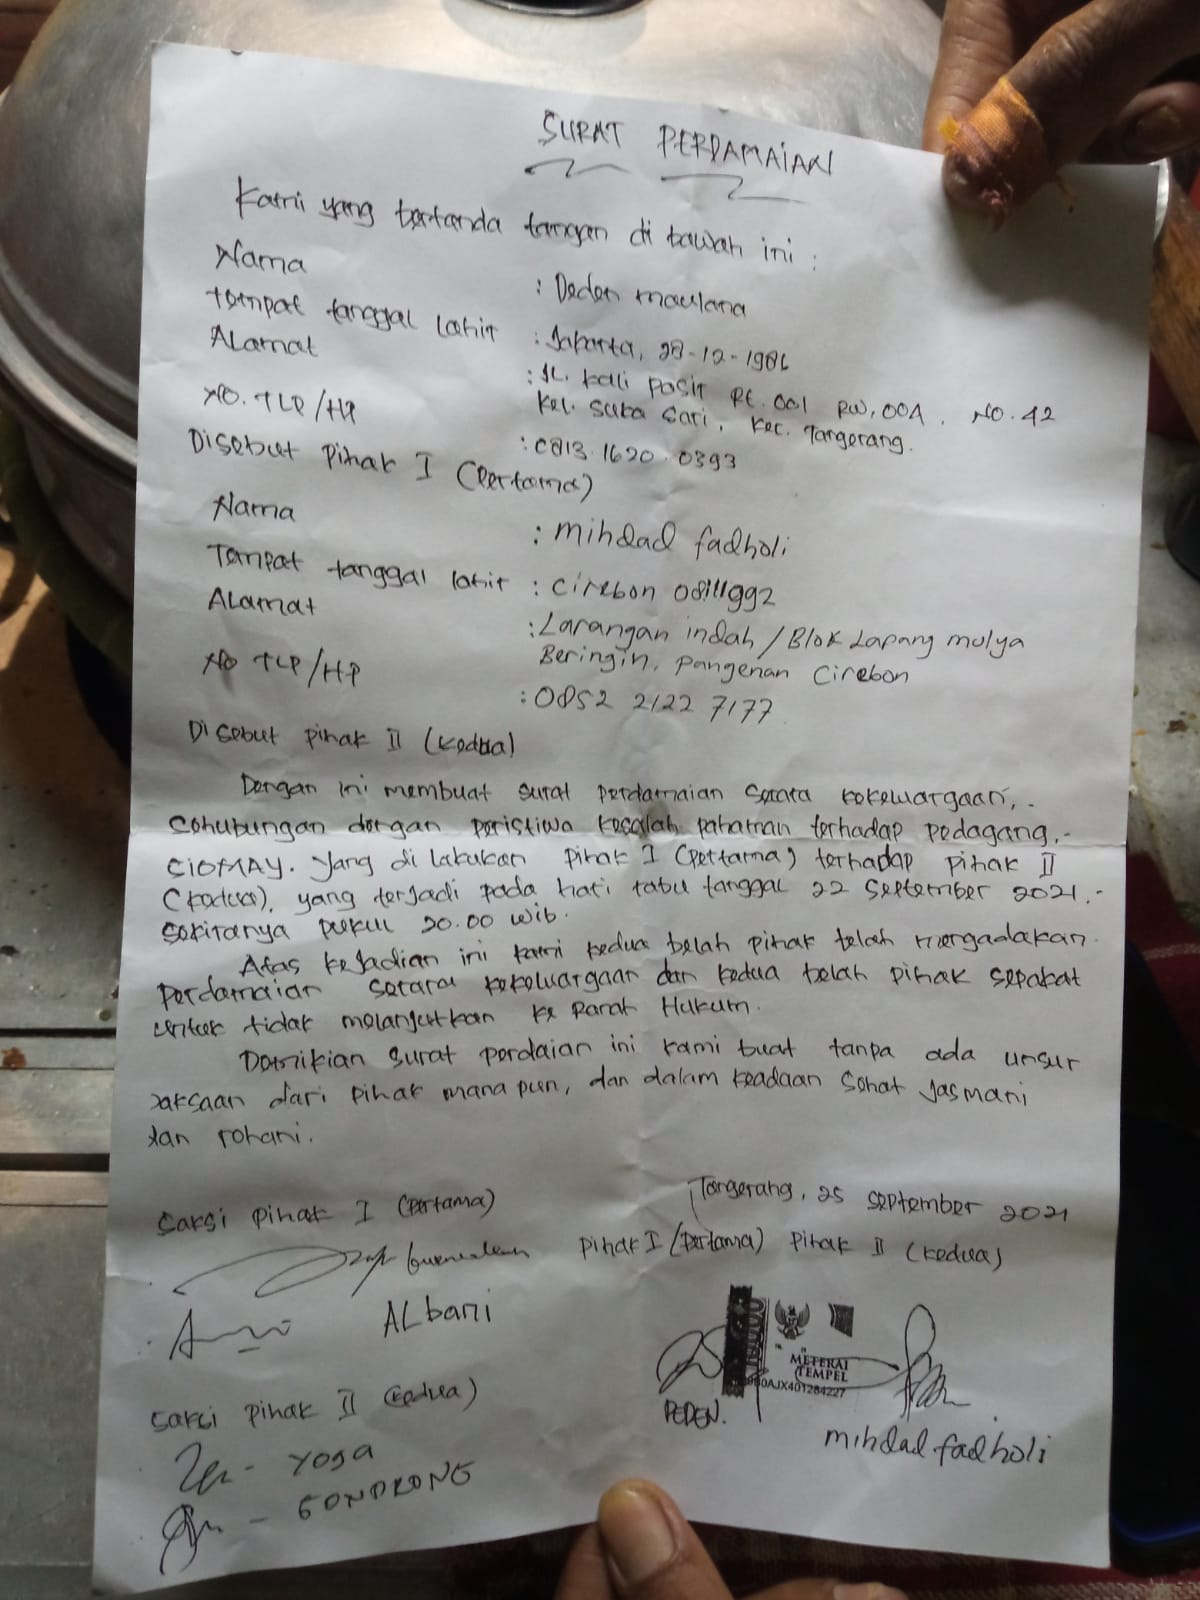 SURAT PERDAMAIAN
Kami yang bertanda tangan di bawah ini :
Nama : Deden maulana
Tempat tanggal Lahir : Jakarta, 28-12-1986
ALamat : JL. kali pasir Rt. 001 RW, 004 . NO. 42
Kel. Suka Sari, Kec. Tangerang.
NO. TLP/HP : 0813.1620.0393
Disebut Pihak I (Pertama)
Nama : mihdad fadholi
Tempat tanggal lahir : Cirebon 08111992
ALamat : Larangan indah / Blok Lapang mulya
Beringin, pangenan Cirebon
No TLP/HP : 0852 2122 7177
Disebut pihak II (kedua)
Dengan ini membuat surat perdamaian secara kekewargaan,.
Sehubungan dengan peristiwa kesalah pahaman terhadap pedagang.-
CIOMAY. yang di lakukan pihak I (pertama) terhadap pihak II
(kedua), yang terjadi pada hari rabu tanggal 22 September 2021.-
sekiranya pukul 20.00 wib.
Atas kejadian ini kami kedua belah pihak telah mengadakan.
perdamaian secara kekeluargaan dan kedua belah pihak sepakat
untuk tidak melanjutkan ke Ranah Hukum.
Demikian surat perdaian ini kami buat tanpa ada unsur
paksaan dari pihak mana pun, dan dalam keadaan sehat jasmani
dan rohani.
Tangerang, 25 september 2021
Saksi pihak I (Pertama)
pihak I (pertama) pihak II (kedua)
ALbani
METERAI
TEMPEL
AJX401284227
DEDEN.
mihdad fadholi
saksi pihak II (kedua)
- Yoga
- GONDRONG